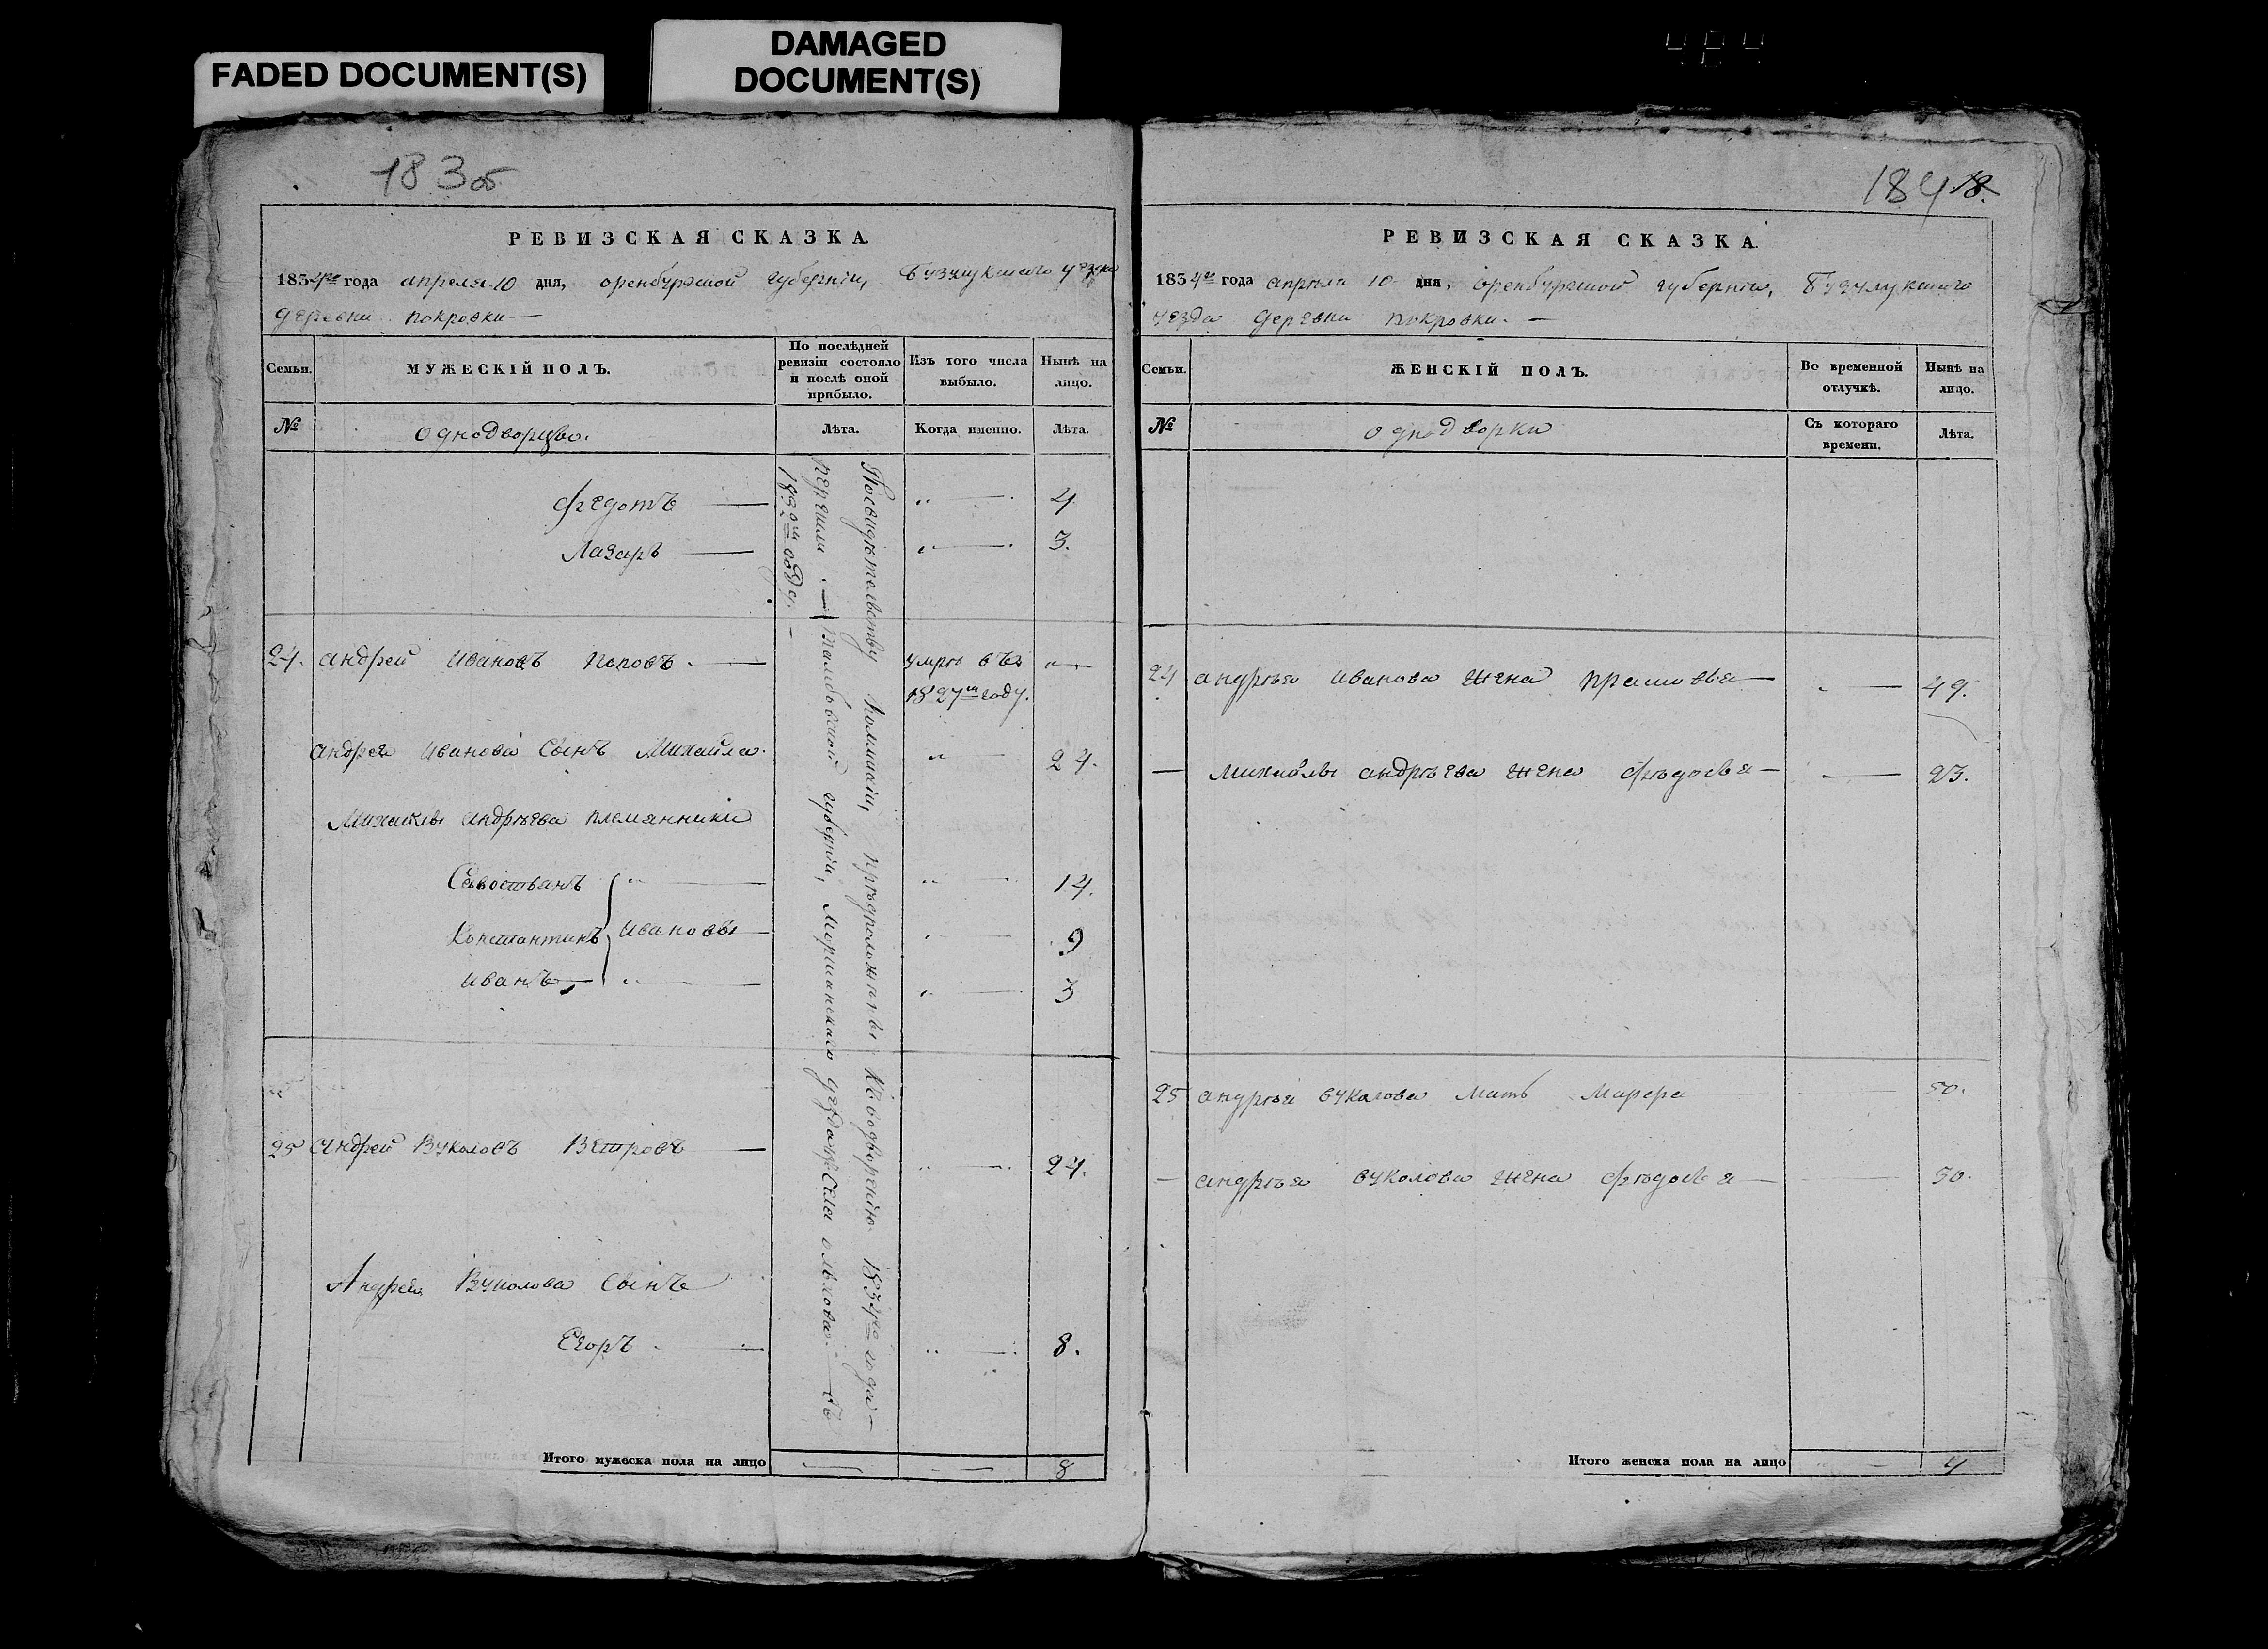 FADED DOCUMENT(S)
DAMAGED
DOCUMENT(S)
183об
РЕВИЗСКАЯ СКАЗКА.
1834го года апреля 10 дня, оренбургской губернiи, Бузулукскаго уезда
деревни покровки
Семьи.
МУЖЕСКІЙ ПОЛЪ.
По послѣдней
ревизіи состояло
и послѣ оной
прибыло.
Изъ того числа
выбыло.
Нынѣ на
лицо.
№
однодворцы.
Лѣта.
Когда именно.
Лѣта.
Федотъ " 4.
Лазарь " 3.
24. андрей ивановъ поповъ. умръ въ "
1827м году.
андрея иванова сынъ Михайла. " 24.
Михайлы андрѣева племянники
Савостьянъ " " 14.
Константинъ ивановы " 9
иванъ " " 3
25 андрей Вуколовъ Ветровъ " 24.
Андрея Вуколова сынъ
Егоръ. " 8.
По свидѣтельству коммисіи, предположены къ водворенію 1834го года
перешли. тамбовской губерніи, Моршанскаго уезда села ольхова. въ
1830м году.
Итого мужеска пола на лицо 8
184 18.
РЕВИЗСКАЯ СКАЗКА.
1834го года апрѣля 10 дня, оренбургской губерніи, Бузулукскаго
уезда деревни покровки.
Семьи.
ЖЕНСКІЙ ПОЛЪ.
Во временной
отлучкѣ.
Нынѣ на
лицо.
№
однодворки
Съ котораго
времени.
Лѣта.
24 андрѣя иванова жена прасковья 49.
Михайлы андрѣева жена федосья 23.
25 андрѣя вуколова мать Марфа 50.
андрѣя вуколова жена федосья 30.
Итого женска пола на лицо 4